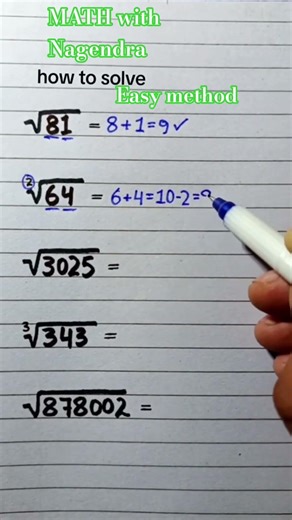 MATH with
Nagendra
how to solve
Easy method
√81 = 8+1=9✓
②√64 = 6+4=10-2=
√3025 =
³√343 =
√878002 =